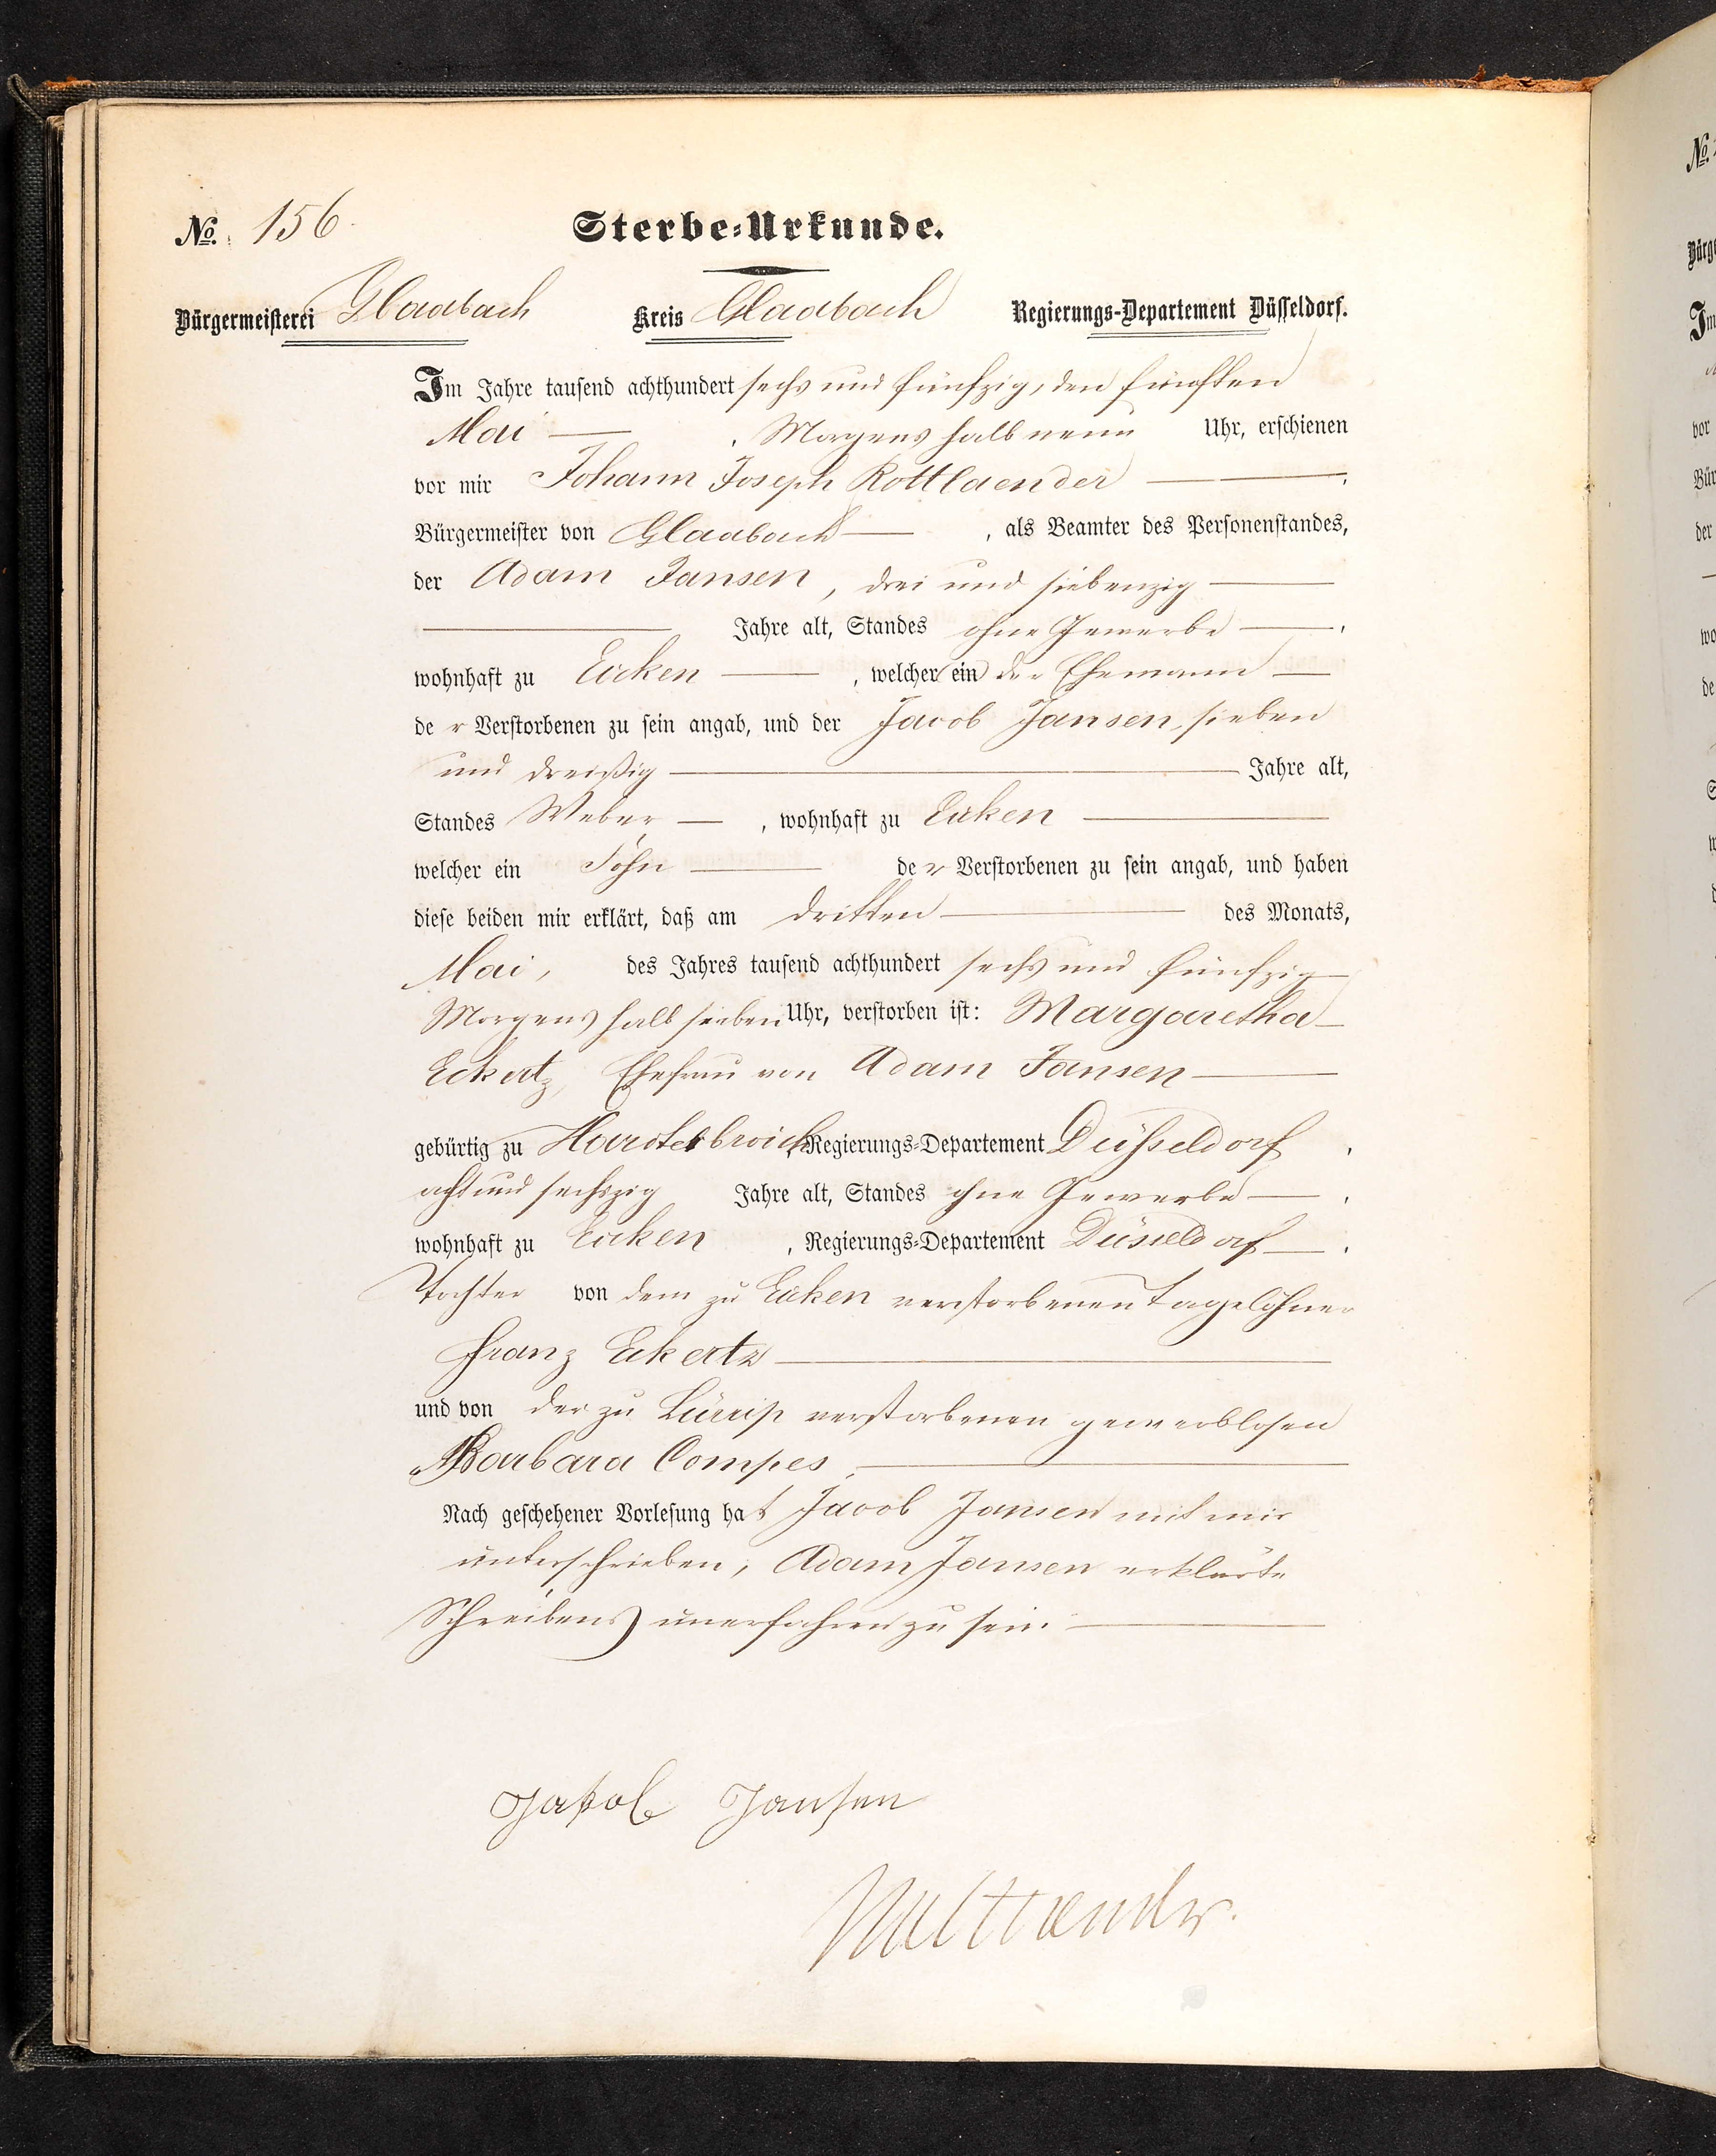 No. 156.
Sterbe-Urkunde.
Bürgermeisterei Gladbach Kreis Gladbach Regierungs-Departement Düsseldorf.
Im Jahre tausend achthundert sechs und fünfzig, den fünften
Mai — , Morgens halb neun Uhr, erschienen
vor mir Johann Joseph Rottlaender — ,
Bürgermeister von Gladbach — , als Beamter des Personenstandes,
der Adam Jansen, drei und siebenzig —
— Jahre alt, Standes ohne Gewerbe — ,
wohnhaft zu Eicken — , welcher (ein) der Ehemann —
der Verstorbenen zu sein angab, und der Jacob Jansen, sieben
und dreißig — Jahre alt,
Standes Weber — , wohnhaft zu Eicken —
welcher ein Sohn — der Verstorbenen zu sein angab, und haben
diese beiden mir erklärt, daß am dritten — des Monats,
Mai, des Jahres tausend achthundert sechs und fünfzig
Morgens halb sieben Uhr, verstorben ist: Margaretha
Eckertz, Ehefrau von Adam Jansen —
gebürtig zu Harterbroich, Regierungs-Departement Düsseldorf ,
acht und sechszig Jahre alt, Standes ohne Gewerbe — ,
wohnhaft zu Eicken , Regierungs-Departement Düsseldorf — ,
Tochter von dem zu Eicken verstorbenen Tagelöhner
Franz Eckertz —
und von der zu Lürrip verstorbenen gewerblosen
Barbara Compes, —
Nach geschehener Vorlesung hat Jacob Jansen mit mir
unterschrieben, Adam Jansen erklärte
Schreibens unerfahren zu sein. —
Jakob Jansen
Rottlaender.